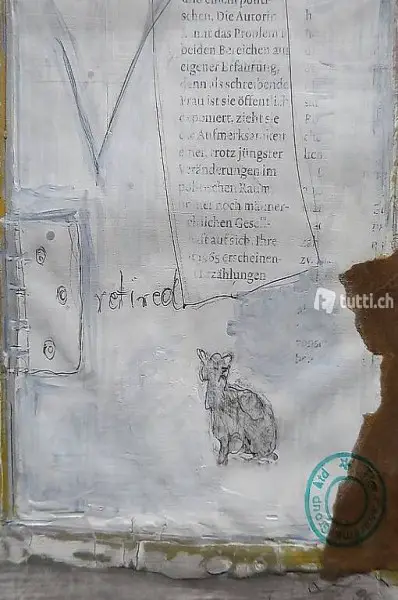 und einem politi-
schen. Die Autorin
das Problem
beiden Bereichen aus
eigener Erfahrung,
denn als schreibende
Frau ist sie öffentlich
exponiert, zieht sie
die Aufmerksamkeit
einer trotz jüngster
Veränderungen im
politischen Raum
immer noch männer-
Gesell-
schaft auf sich. Ihre
1965 erscheinen-
Erzählungen
retired
tutti.ch